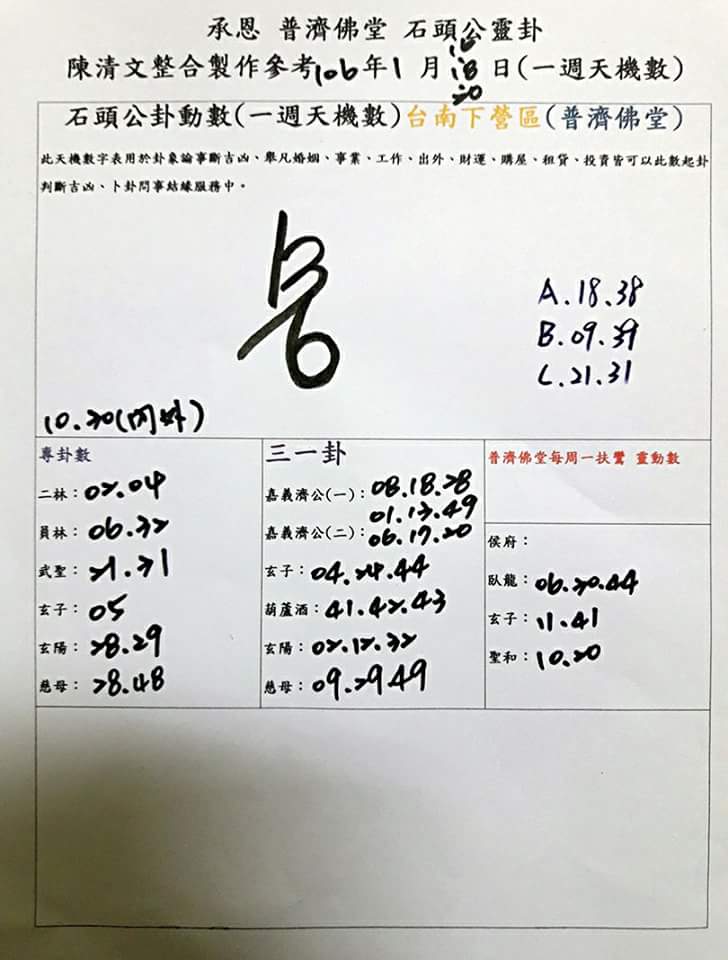 承恩 普濟佛堂 石頭公靈卦
陳清文整合製作參考106年1月16 18 20日(一週天機數)
石頭公卦動數(一週天機數)台南下營區(普濟佛堂)
此天機數字表用於卦象論事斷吉凶、舉凡婚姻、事業、工作、出外、財運、購屋、租貸、投資皆可以此數起卦
判斷吉凶、卜卦問事結緣服務中。
A.18.38
B.09.39
C.21.31
10.20(內外)
專卦數
二林：02.04
員林：06.32
武聖：21.71
玄子：05
玄陽：28.29
慈母：28.48
三一卦
嘉義濟公(一)：08.18.28
01.17.49
嘉義濟公(二)：06.17.20
玄子：04.24.44
葫蘆酒：41.42.43
玄陽：02.12.32
慈母：09.29.49
普濟佛堂每周一扶鸞 靈動數
侯府：
臥龍：06.20.44
玄子：11.41
聖和：10.20